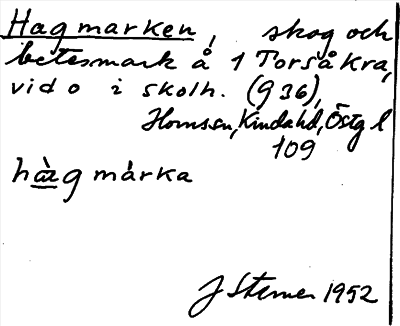 Hagmarken, skog och
betesmark å 1 Torsåkra,
vid o i skolh. (g 36),
Hornssn, Kinda hd, Östg l
109
hàg màrka
J Sterner 1952